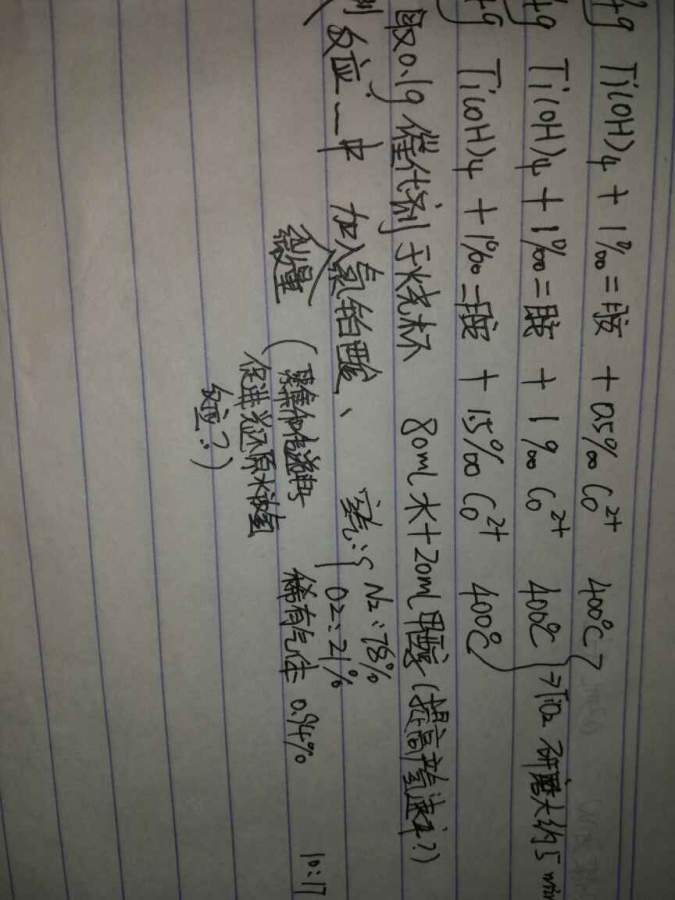 4g Ti(OH)4 + 1‰ 二胺 + 0.5‰ Co2+ 400℃
4g Ti(OH)4 + 1‰ 二胺 + 1‰ Co2+ 400℃ } ⇒ TiO2 研磨大约5 min
4g Ti(OH)4 + 1‰ 二胺 + 1.5‰ Co2+ 400℃
取0.1g 催化剂于烧杯 80ml 水+20ml 甲醇(提高产氢速率?)
反应 中 加入氯铂酸、 空气: { N2:78%
O2:21%
稀有气体 0.94%
微量 (聚集
促进光还原水放氢
反应?)
10:17